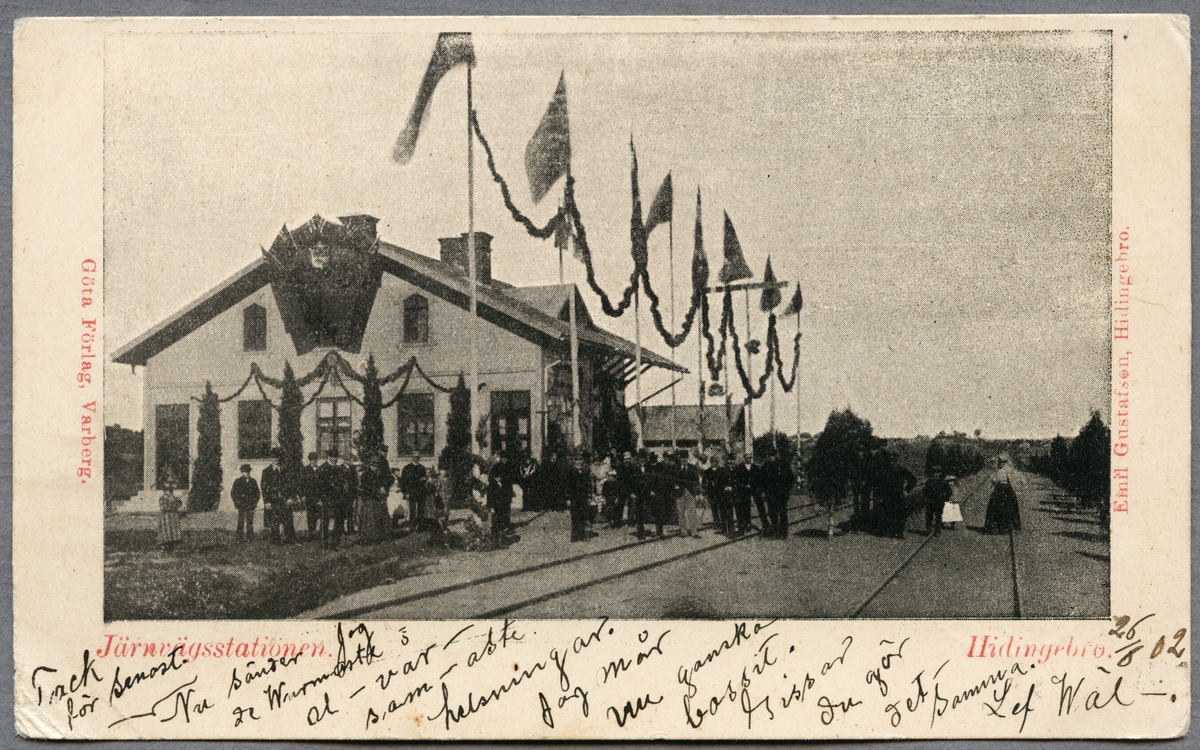 Göta Förlag, Varberg.
Emil Gustafson, Hidingebro.
Järnvägsstationen.
Hidingebro.
26/8 02
Tack
för senast.
— Nu sänder Jag
de Warmaste
al-var-
sam-aste.
helsningar.
Jag mår
nu ganska
bossit.
Gissar
du gör
det-
samma.
Lef Wäl —.